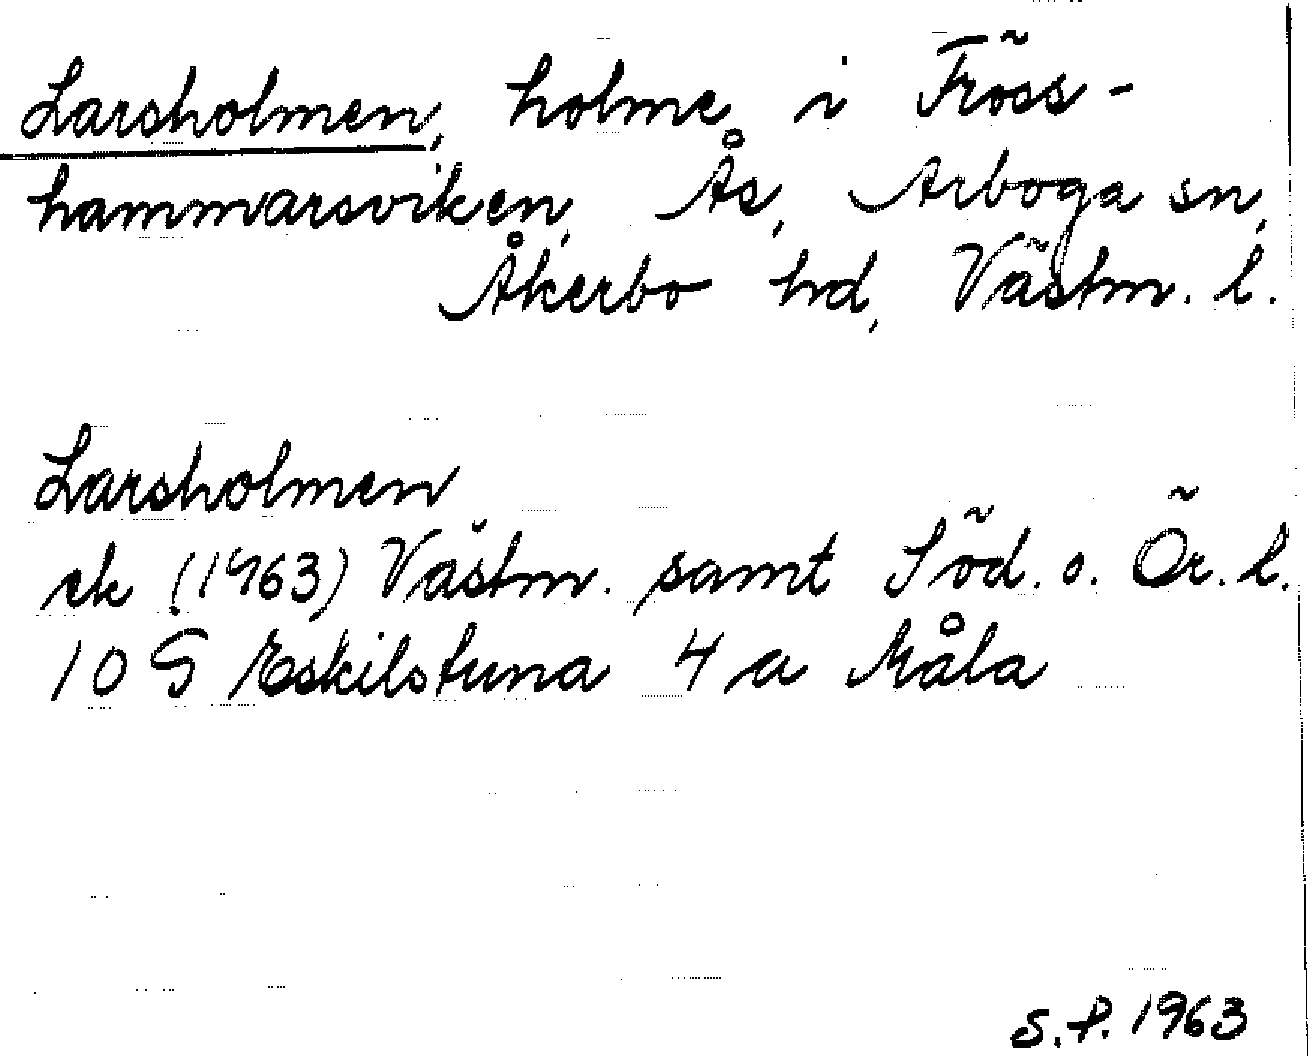 Larsholmen, holme i Fröss-
hammarsviken, Ås, Arboga sn,
Åkerbo hd, Västm. l.
Larsholmen
ek (1963) Västm. samt Söd. o. Ör. l.
10 G Eskilstuna 4 a Måla
S.P. 1963